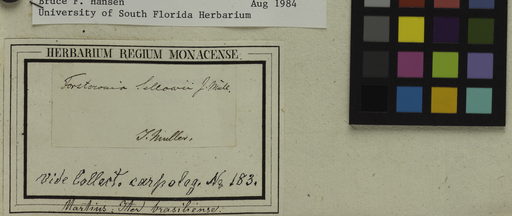 Bruce F. Hansen Aug 1984
University of South Florida Herbarium
HERBARIUM REGIUM MONACENSE.
Forsteronia Sellowii J. Müll.
J. Müller.
Vide Collect. carpolog. No 183.
Martius: Iter brasiliense.